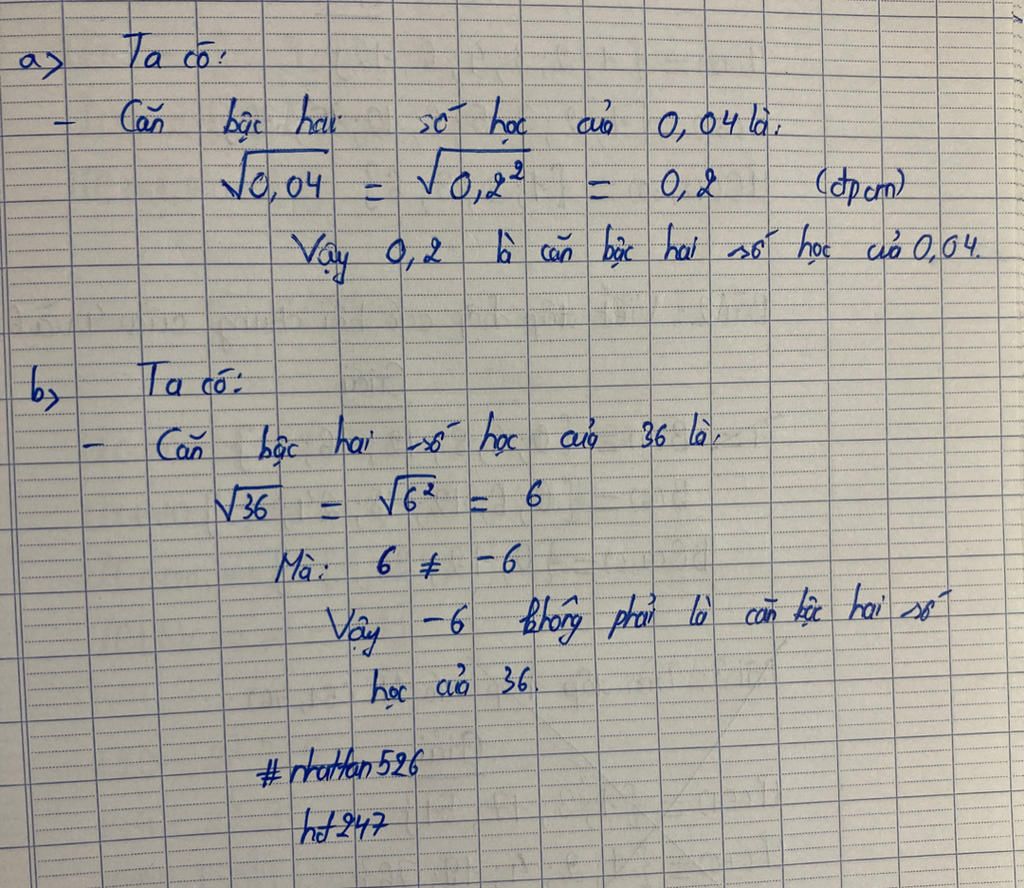 a> Ta có:
- Căn bậc hai số học của 0,04 là:
√0,04 = √0,2² = 0,2 (đpcm)
Vậy 0,2 là căn bậc hai số học của 0,04.
b> Ta có:
- Căn bậc hai số học của 36 là:
√36 = √6² = 6
Mà: 6 ≠ -6
Vậy -6 không phải là căn bậc hai số
học của 36.
# nhattan526
hd247